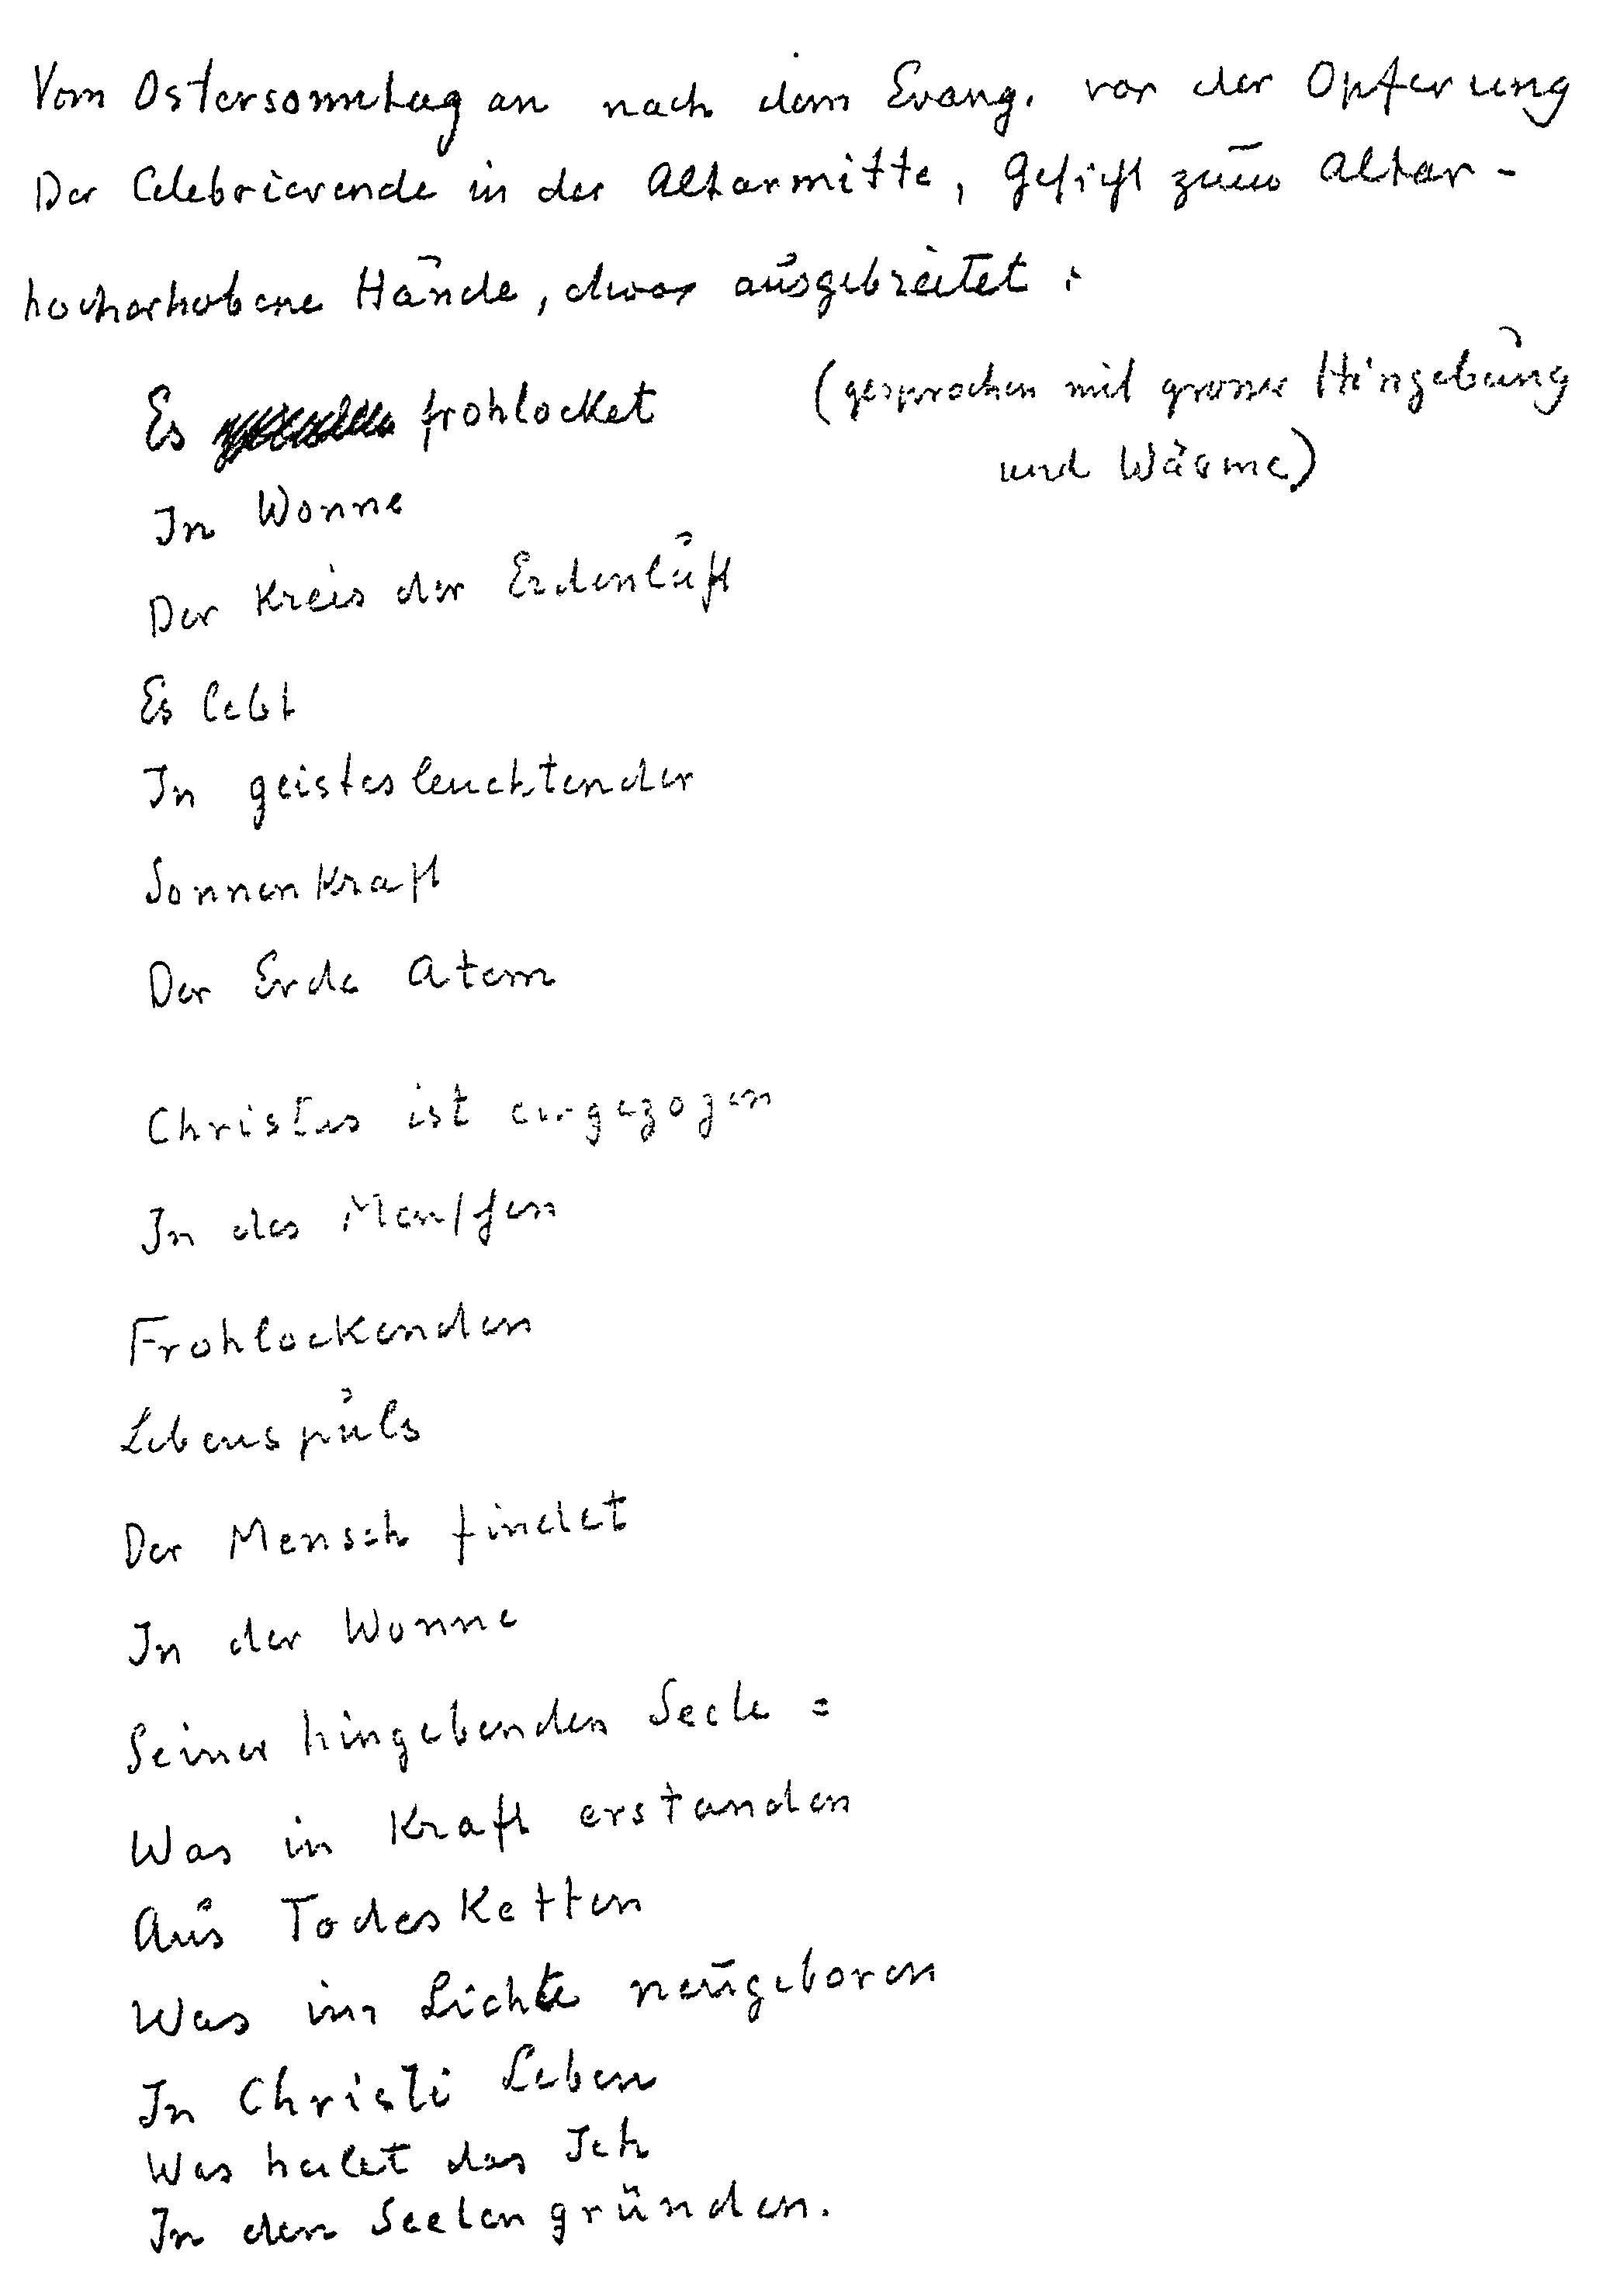 Vom Ostersonntag an nach dem Evang. vor der Opferung
Der Celebrierende in der Altarmitte, Gesicht zum Altar -
hocherhobene Hände, etwas ausgebreitet :
Es frohlocket (gesprochen mit grosser Hingebung
und Wärme)
In Wonne
Der Kreis der Erdenluft
Es lebt
In geistesleuchtender
Sonnenkraft
Der Erde Atem
Christus ist eingezogen
In des Menschen
Frohlockenden
Lebenspuls
Der Mensch findet
In der Wonne
Seiner hingebenden Seele =
Was in Kraft erstanden
Aus Todesketten
Was im Lichte neugeboren
In Christi Leben
Was heilet das Ich
In den Seelengründen.